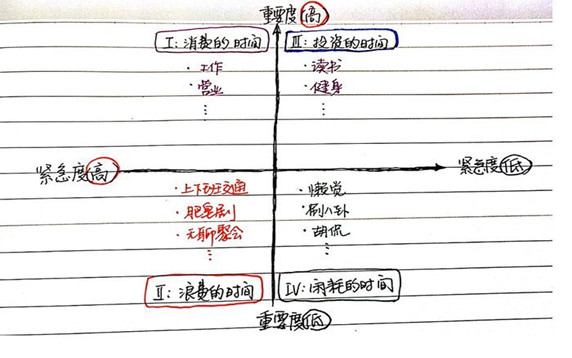 重要度高
I：消费的时间
III：投资的时间
· 工作
· 营业
⋮
· 读书
· 健身
⋮
紧急度高
紧急度低
· 上下班交通
· 肥皂剧
· 无聊聚会
⋮
· 懒觉
· 刷八卦
· 胡侃
⋮
II：浪费的时间
IV：消耗的时间
重要度低